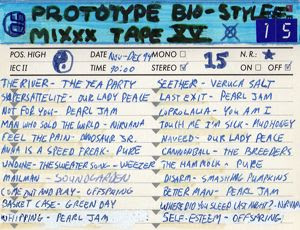 PROTOTYPE BIO-STYLEE
MIXXX TAPE XV
15
POS. HIGH
IEC II
DATE NOV-DEC 94
TIME 90:00
MONO
STEREO
15
N.R.:
ON
OFF
THE RIVER - THE TEA PARTY
SUPERSATELLITE - OUR LADY PEACE
NOT FOR YOU - PEARL JAM
MAN WHO SOLD THE WORLD - NIRVANA
FEEL THE PAIN - DINOSAUR JR.
ANNA IS A SPEED FREAK - PURE
UNDONE - THE SWEATER SONG - WEEZER
MAILMAN - SOUNDGARDEN
COME OUT AND PLAY - OFFSPRING
BASKET CASE - GREEN DAY
WHIPPING - PEARL JAM
SEETHER - VERUCA SALT
LAST EXIT - PEARL JAM
COPROLALIA - YOU AM I
TOUCH ME I'M SICK - MUDHONEY
NAVEED - OUR LADY PEACE
CANNONBALL - THE BREEDERS
THE HAMMOCK - PURE
DISARM - SMASHING PUMPKINS
BETTER MAN - PEARL JAM
WHERE DID YOU SLEEP LAST NIGHT? - NIRVANA
SELF-ESTEEM - OFFSPRING